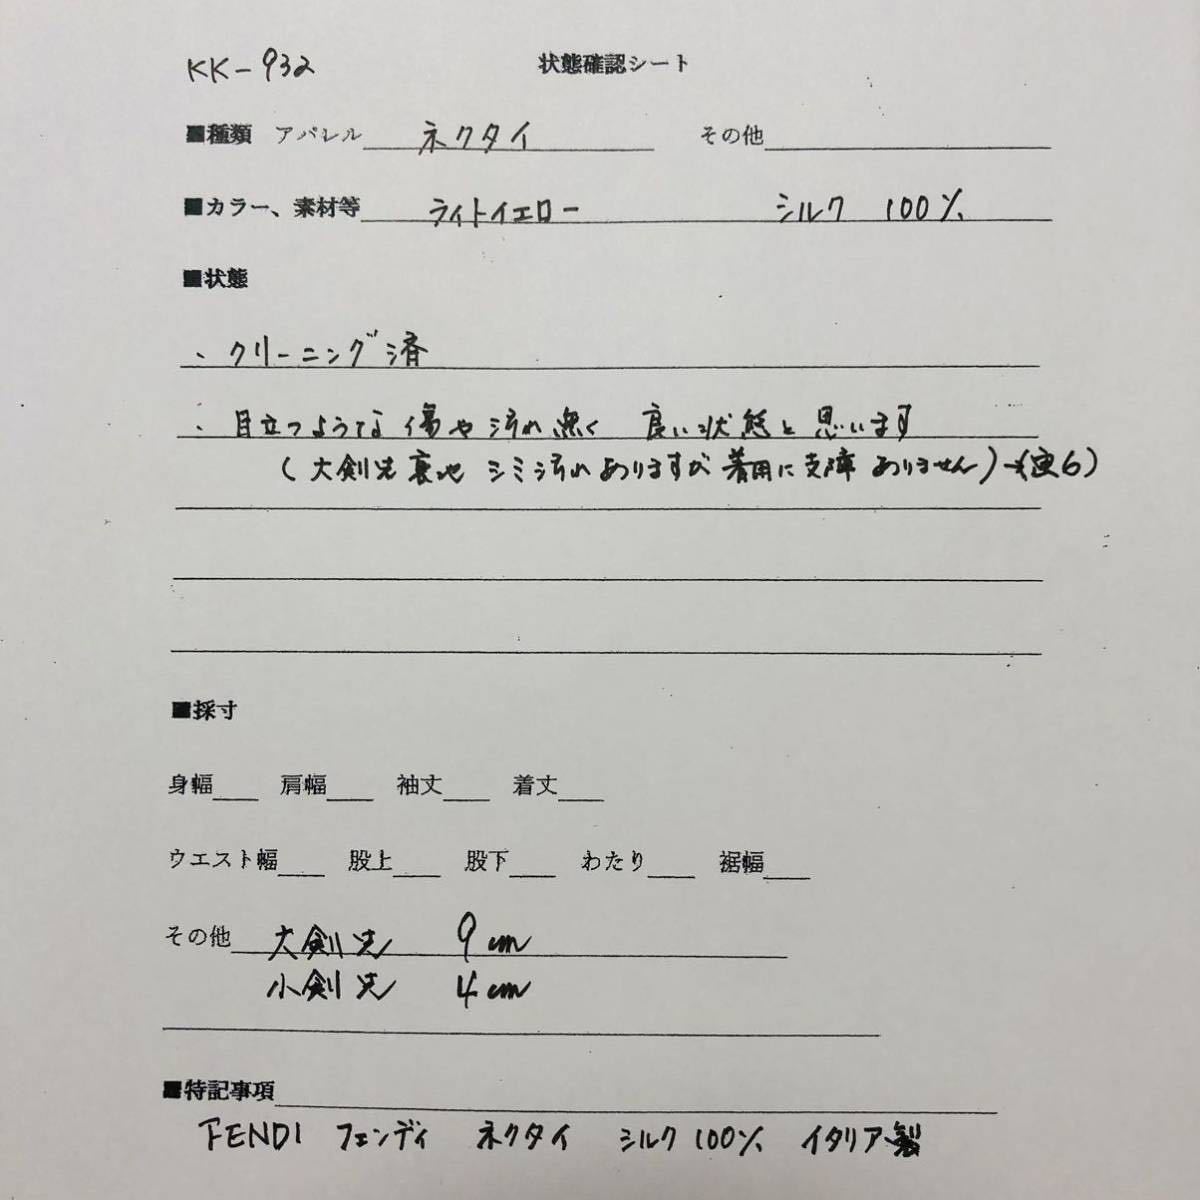 KK-932 状態確認シート
■種類 アパレル ネクタイ その他
■カラー、素材等 ライトイエロー シルク 100%
■状態
・クリーニング済
・目立つような傷や汚れ無く 良い状態と思います
(大剣先裏地 シミ汚れありますが着用に支障ありません)
■採寸
身幅 肩幅 袖丈 着丈
ウエスト幅 股上 股下 わたり 裾幅
その他 大剣先 9cm
小剣先 4cm
■特記事項
FENDI フェンディ ネクタイ シルク100% イタリア製